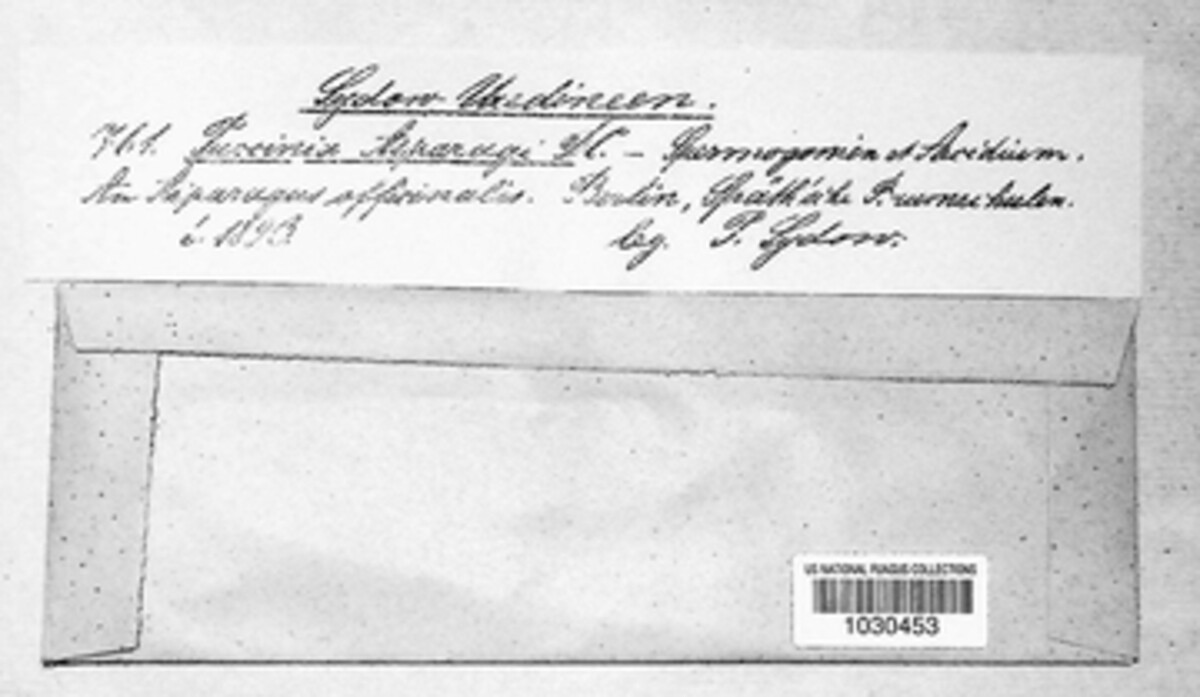 Sydow Uredineen.
761. Puccinia Asparagi DC. — Spermogonien et Aecidium.
An Asparagus officinalis. Berlin, Späth'sche Baumschulen.
1893 leg. P. Sydow.
US NATIONAL FUNGUS COLLECTIONS
1030453